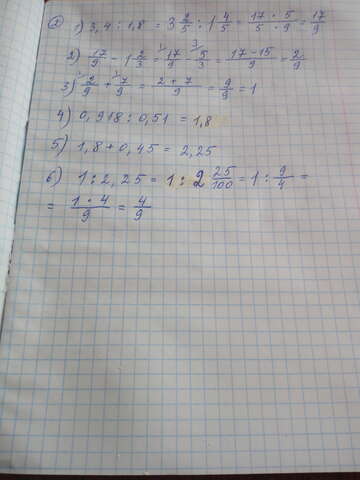 1) 1) 3,4 : 1,8 = 3 2/5 : 1 4/5 = 17 · 5 / 5 · 9 = 17/9
2) 17/9 - 1 2/3 = 17/9 - 5/3 = 17-15/9 = 2/9
3) 2/9 + 7/9 = 2+7/9 = 9/9 = 1
4) 0,918 : 0,51 = 1,8
5) 1,8 + 0,45 = 2,25
6) 1 : 2,25 = 1 : 2 25/100 = 1 : 9/4 =
= 1 · 4/9 = 4/9